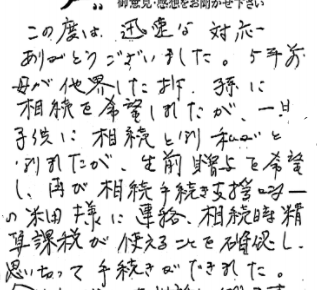 御意見・感想をお聞かせ下さい
この度は、迅速な対応
ありがとうございました。5年前
母が他界した折、孫に
相続を希望しましたが、一旦
子供に相続と
たが、生前贈与を希望
し、再が相続手続き支援
の米田様に連絡、相続時精
算課税が使えることを確認し、
思い切って手続きができました。